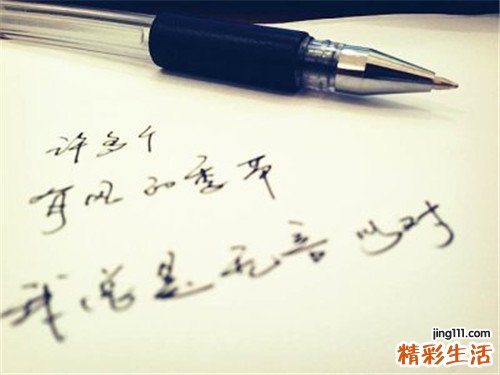 许多个
有风的季节
我总是无言以对
jing111.com
精彩生活